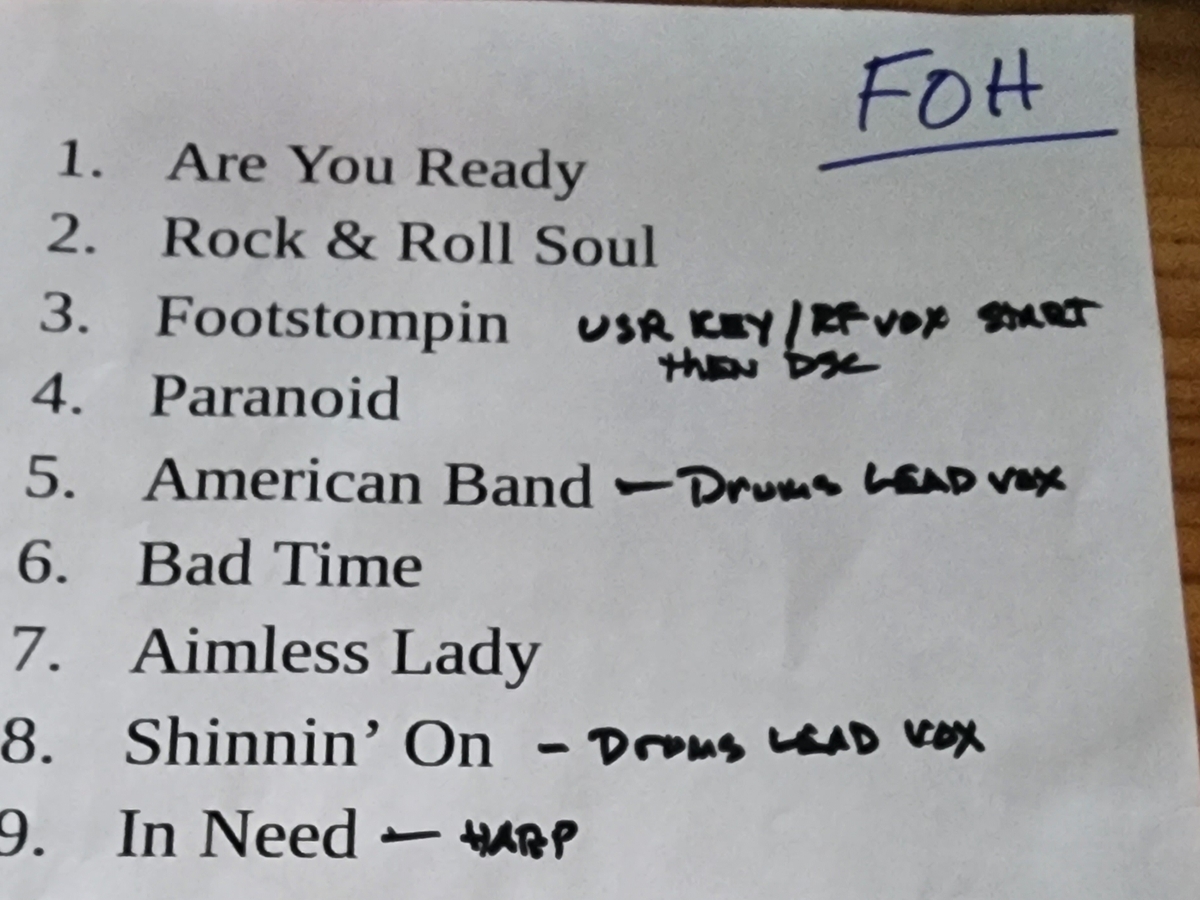 FOH
1. Are You Ready
2. Rock & Roll Soul
3. Footstompin USR KEY/RF VOX START
THEN DSC
4. Paranoid
5. American Band — Drums LEAD VOX
6. Bad Time
7. Aimless Lady
8. Shinnin’ On - Drums LEAD VOX
9. In Need — HARP